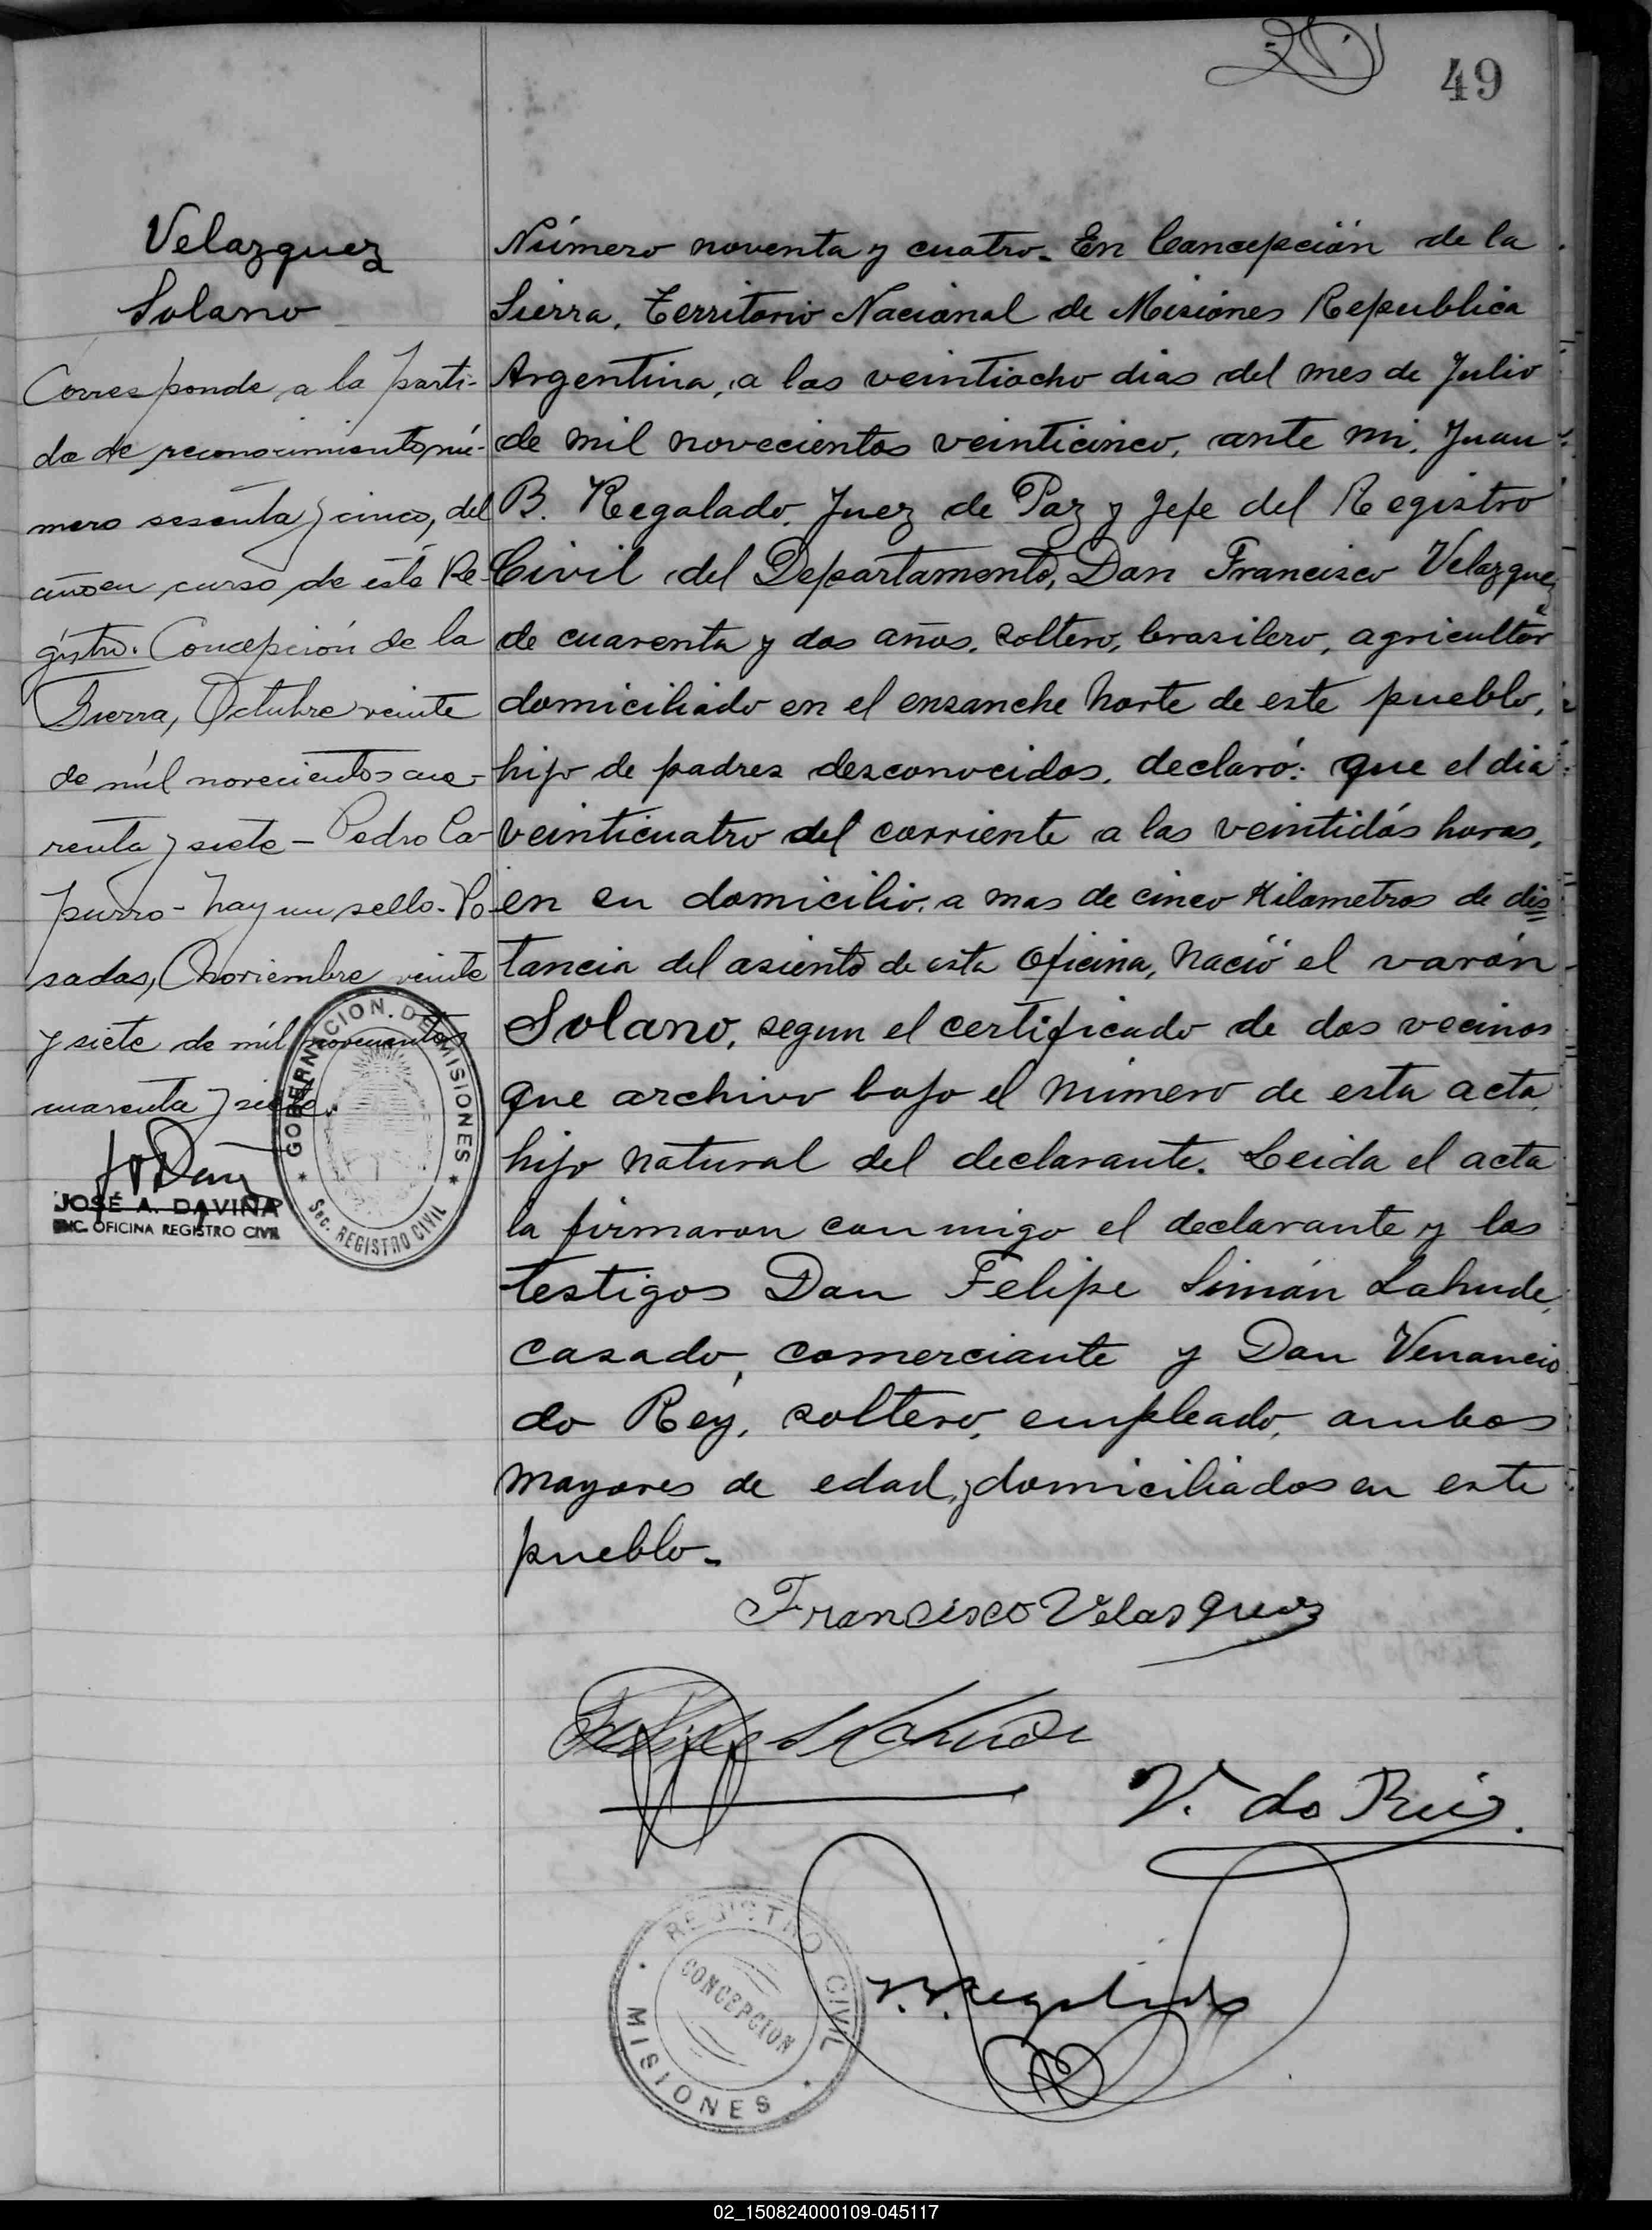 49
Velazquez
Solano
Corresponde a la parti-
da de reconocimiento nú-
mero sesenta y cinco, del
año en curso de este Re-
gistro. Concepción de la
Sierra, Octubre veinte
de mil novecientos cua-
renta y siete - Pedro Ca-
purro - hay un sello. Po-
sadas, Noviembre veinte
y siete de mil novecientos
cuarenta y siete.
JOSÉ A. DAVIÑA
ENC. OFICINA REGISTRO CIVIL
GOBERNACION DE MISIONES
Sec. REGISTRO CIVIL
Número noventa y cuatro. En Concepción de la
Sierra, Territorio Nacional de Misiones Republica
Argentina, a los veintiocho dias del mes de Julio
de mil novecientos veinticinco, ante mi, Juan
B. Regalado, Juez de Paz y Jefe del Registro
Civil del Departamento, Don Francisco Velazquez
de cuarenta y dos años, soltero, brasilero, agricultor
domiciliado en el ensanche Norte de este pueblo,
hijo de padres desconocidos, declaró: que el dia
veinticuatro del corriente a las veintidós horas,
en su domicilio, a mas de cinco Kilometros de dis=
tancia del asiento de esta Oficina, nació el varón
Solano, segun el certificado de dos vecinos
que archivo bajo el número de esta acta,
hijo natural del declarante. Leida el acta
la firmaron con migo el declarante y los
testigos Don Felipe Simón Lahude,
casado, comerciante y Don Venancio
do Rey, soltero, empleado, ambos
mayores de edad, y domiciliados en este
pueblo.
Francisco Velasquez
Felipe S Lahude
V. do Rei.
J. B. Regalado
REGISTRO CIVIL
CONCEPCION
MISIONES
02_150824000109-045117